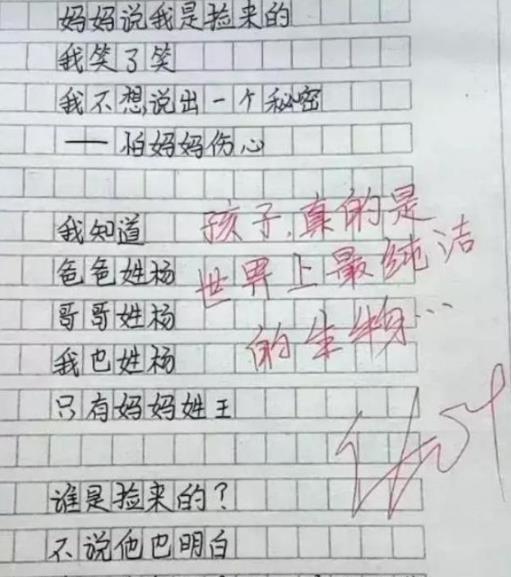 妈妈说我是捡来的
我笑了笑
我不想说出一个秘密
——怕妈妈伤心
我知道
爸爸姓杨
哥哥姓杨
我也姓杨
只有妈妈姓王
谁是捡来的？
不说他也明白
孩子，真的是
世界上最纯洁
的生物…